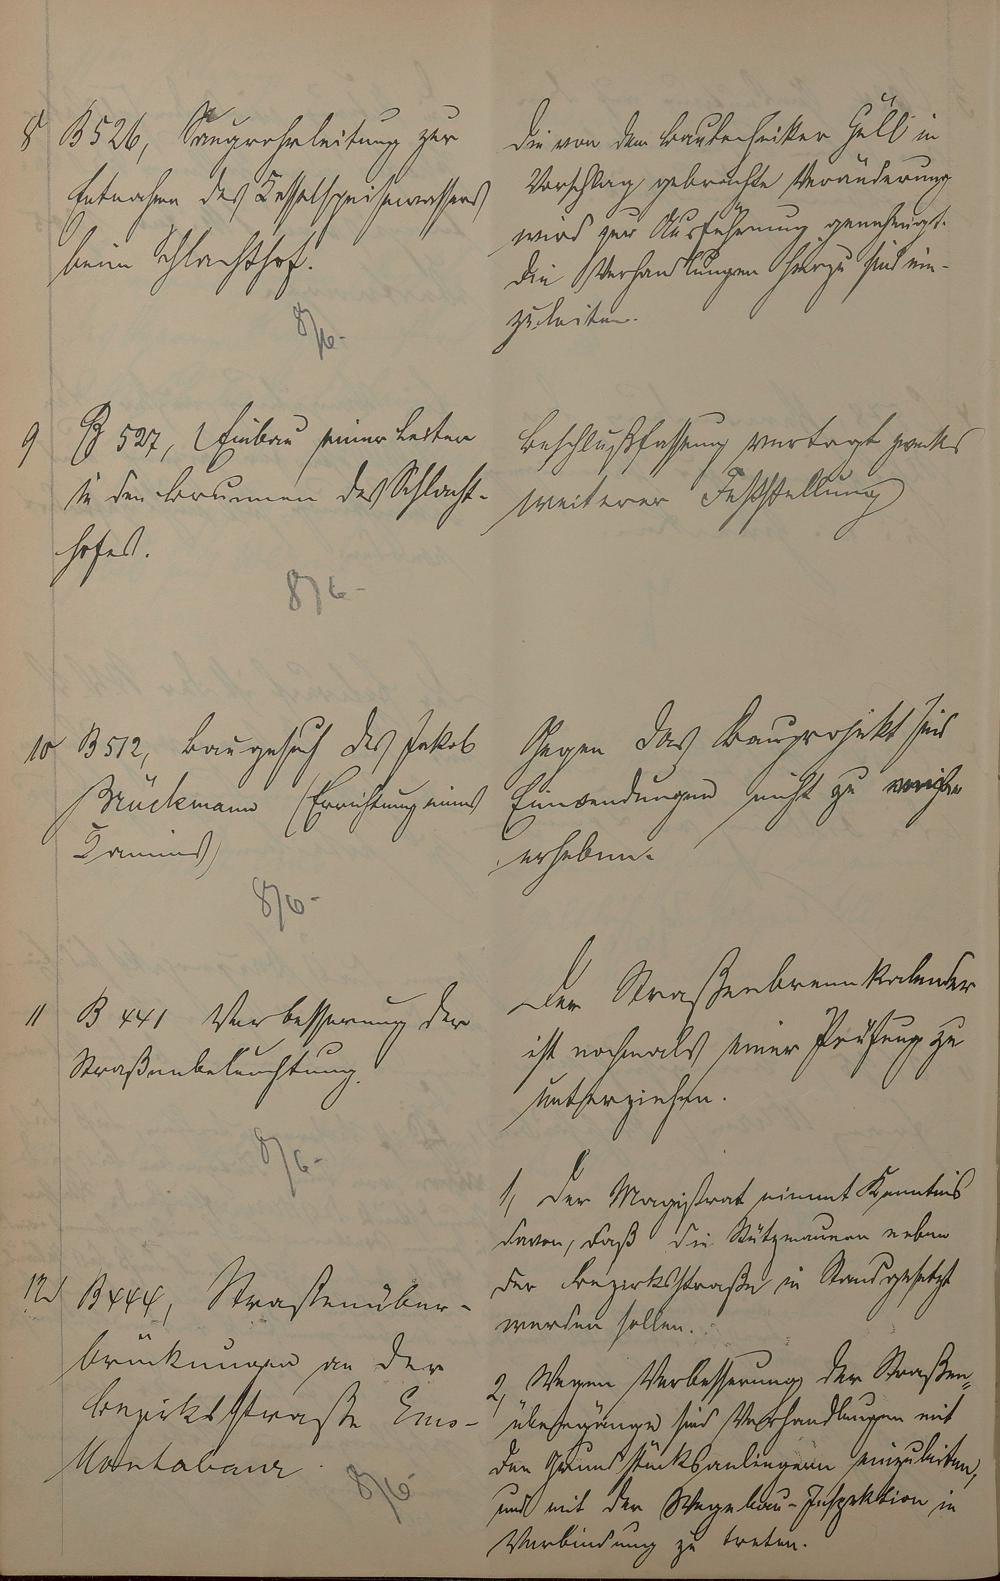 8 B 526, Saugrohrleitung zur
Entnahme des Kesselspeisewassers
beim Schlachthof.
8/6-
Die von dem Bautechniker Güll in
Vorschlag gebrachte Veränderung
wird zur Ausführung genehmigt.
Die Verhandlungen hierzu sind ein-
zuleiten.
9 B 527, Einbau einer Leiter
in den Brunnen des Schlacht-
hofes.
8/6-
Beschlußfassung vertagt zwecks
weiterer Feststellung
10 B 512, Baugesuch des Jakob
Brückmann (Errichtung eines
Kamins)
8/6-
Gegen das Bauprojekt sind
Einwendungen nicht zu
erheben.
11 B 441 Verbesserung der
Straßenbeleuchtung.
8/6-
Der Straßenbrennkalender
ist nochmals einer Prüfung zu
unterziehen.
12 B 444, Straßenüber-
brückungen an der
Bezirksstraße Ems-
Montabaur
8/6-
1, Der Magistrat nimmt Kenntnis
davon, daß die Stützmauern neben
der Bezirksstraße in Stand gesetzt
werden sollen.
2, Wegen Verbesserung der Straßen-
übergänge sind Verhandlungen mit
den Grundstücksanliegern einzuleiten,
und mit der Wegebau-Inspektion in
Verbindung zu treten.